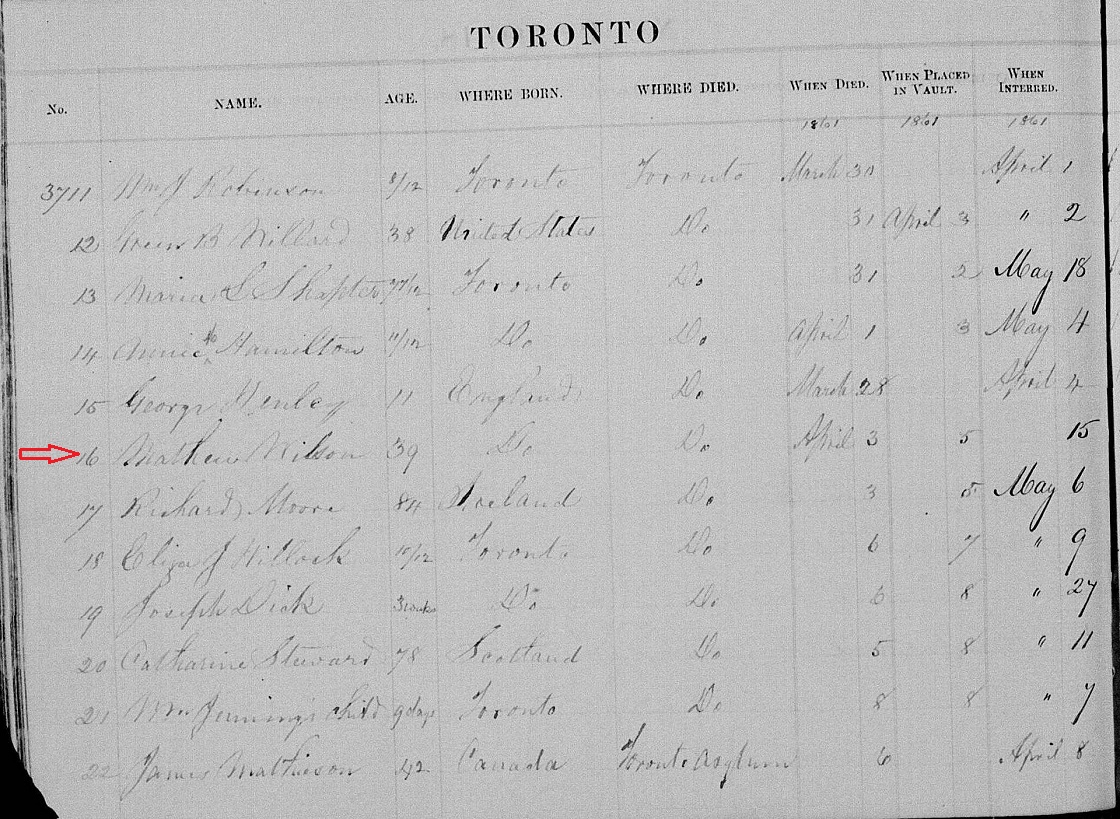 TORONTO
No. NAME. AGE. WHERE BORN. WHERE DIED. WHEN DIED. WHEN PLACED IN VAULT. WHEN INTERRED.
1861 1861 1861
3711 Wm J Robinson /12 Toronto Toronto March 30 April 1
12 Green B Willard 38 United States Do 31 April 3 " 2
13 Maria L Shapter /12 Toronto Do 31 2 May 18
14 Annie Hamilton 11/12 Do Do April 1 3 May 4
15 George Henley 11 England Do March 28 April 4
16 Mathew Wilson 39 Do Do April 3 5 15
17 Richard Moore 84 Ireland Do 3 5 May 6
18 Eliza J Hillock 10/12 Toronto Do 6 7 " 9
19 Joseph Dick 3 weeks Do Do 6 8 " 27
20 Catharine Steward 78 Scotland Do 5 8 " 11
21 Wm Jennings child 9 days Toronto Do 8 8 " 7
22 James Mathieson 42 Canada Toronto Asylum 6 April 8